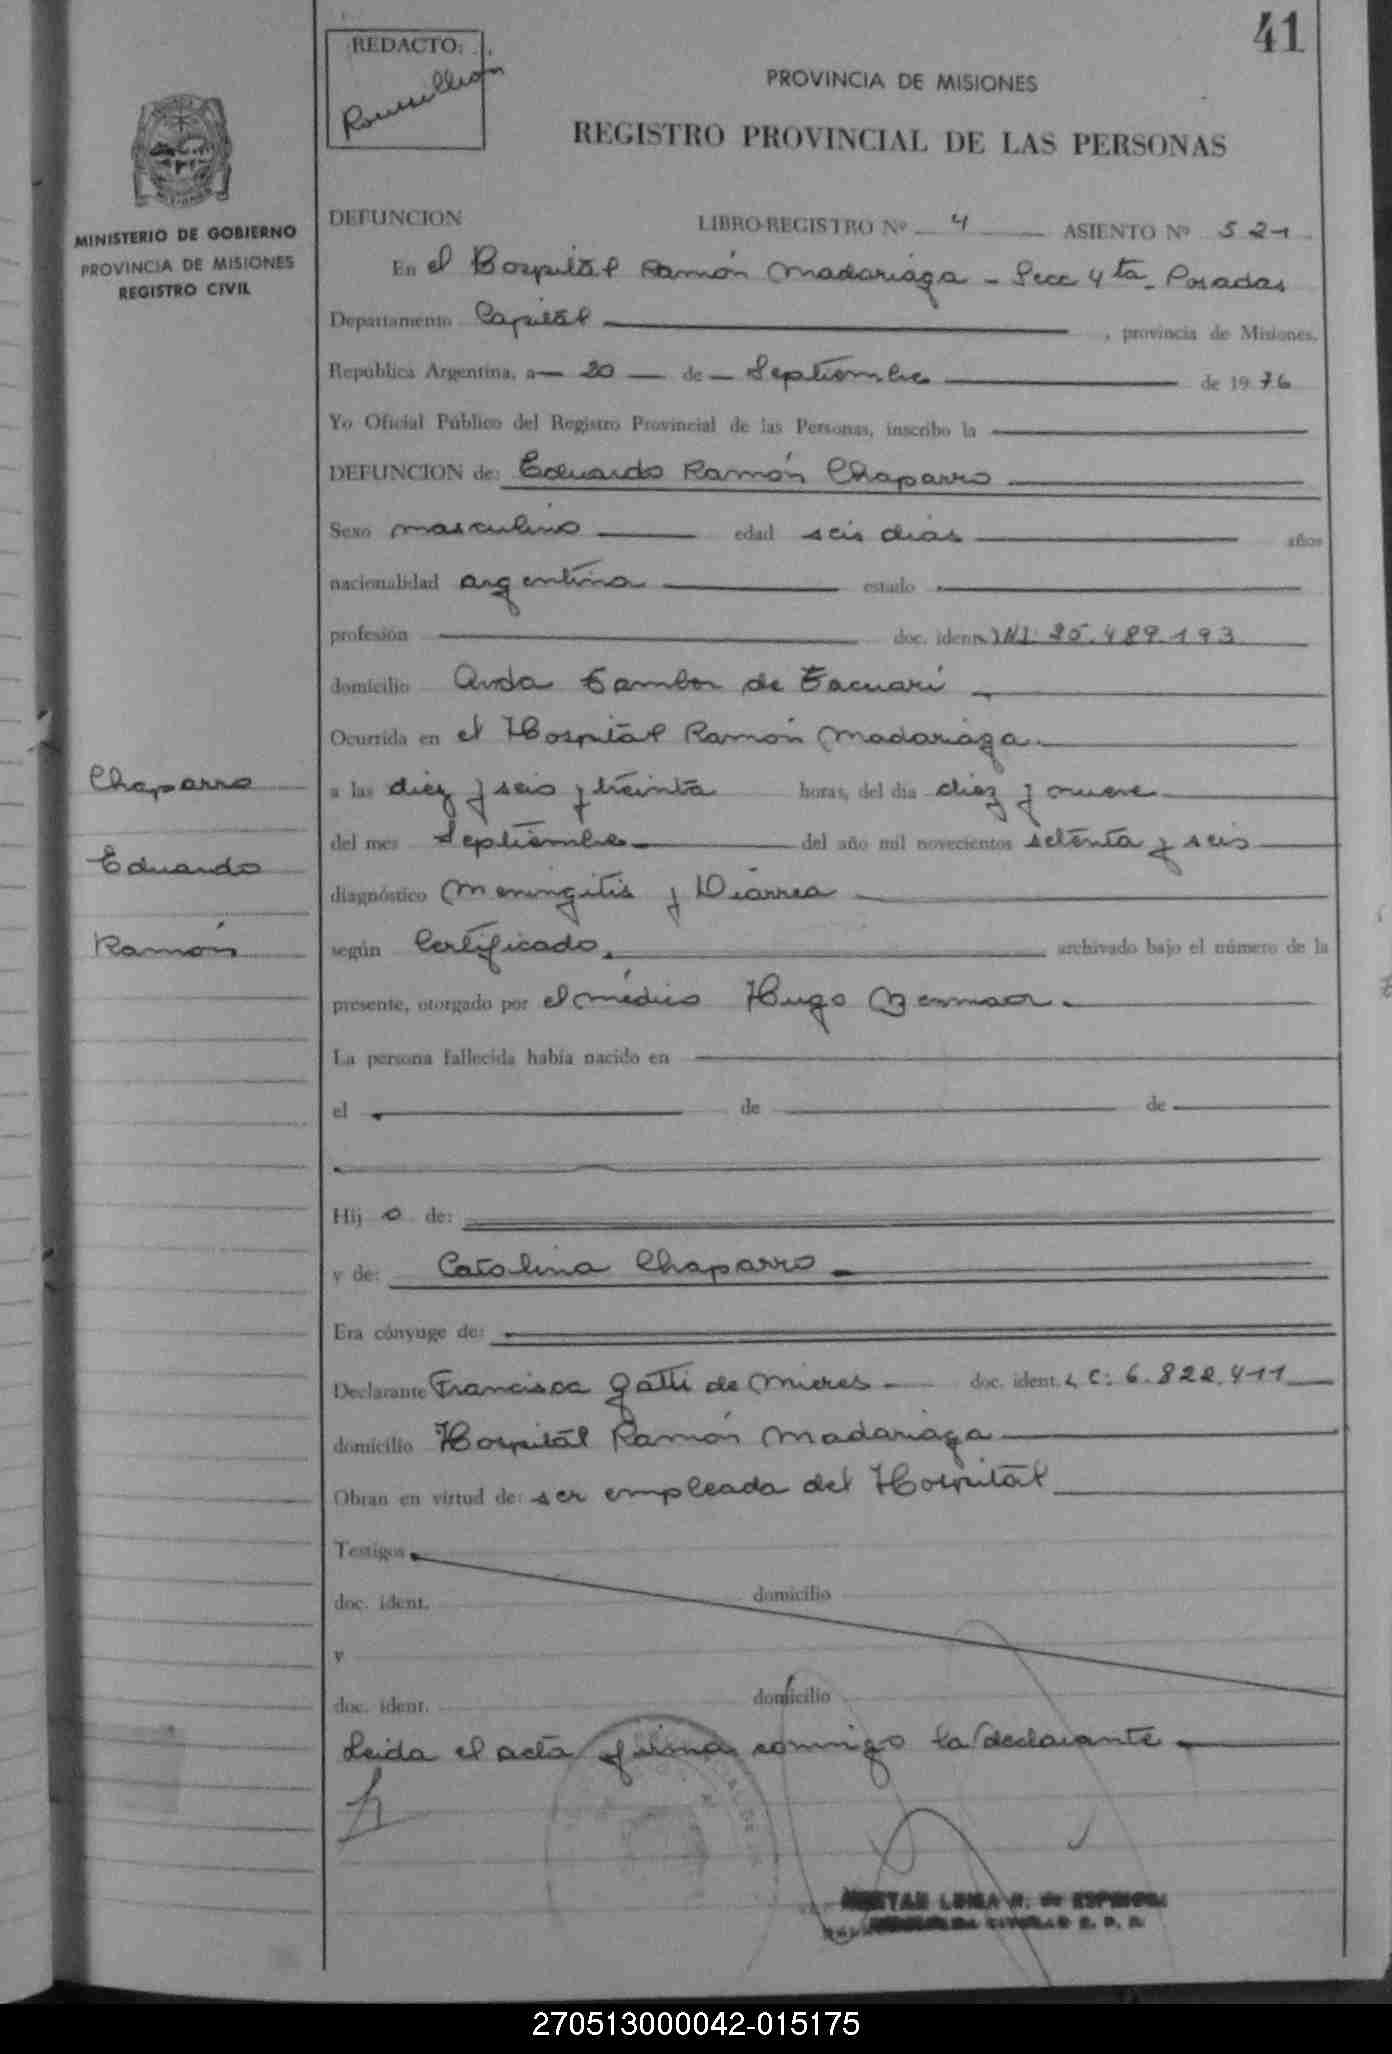 41
REDACTO:
PROVINCIA DE MISIONES
REGISTRO PROVINCIAL DE LAS PERSONAS
MINISTERIO DE GOBIERNO
PROVINCIA DE MISIONES
REGISTRO CIVIL
DEFUNCION LIBRO-REGISTRO Nº 4 ASIENTO Nº 521
En el Hospital Ramón Madariaga - Secc 4ta - Posadas
Departamento Capital , provincia de Misiones,
República Argentina, a 20 de Septiembre de 1976
Yo Oficial Público del Registro Provincial de las Personas, inscribo la
DEFUNCION de: Eduardo Ramón Chaparro
Sexo masculino edad seis dias años
nacionalidad argentina estado
profesión doc. ident. DNI: 25.489.193
domicilio Avda Tambor de Tacuarí
Ocurrida en el Hospital Ramón Madariaga.
a las diez y seis y treinta horas, del día diez y nueve
del mes Septiembre del año mil novecientos setenta y seis
diagnóstico Meningitis y Diarrea
según Certificado archivado bajo el número de la
presente, otorgado por el médico Hugo
La persona fallecida había nacido en
el de de
Hij o de:
y de: Catalina Chaparro
Era cónyuge de:
Declarante Francisca Gatti de Mieres doc. ident. L C: 6.822.411
domicilio Hospital Ramón Madariaga
Obran en virtud de: ser empleada del Hospital
Testigos
doc. ident. domicilio
y
doc. ident. domicilio
Leida el acta firma conmigo la declarante
Chaparro
Eduardo
Ramón
270513000042-015175